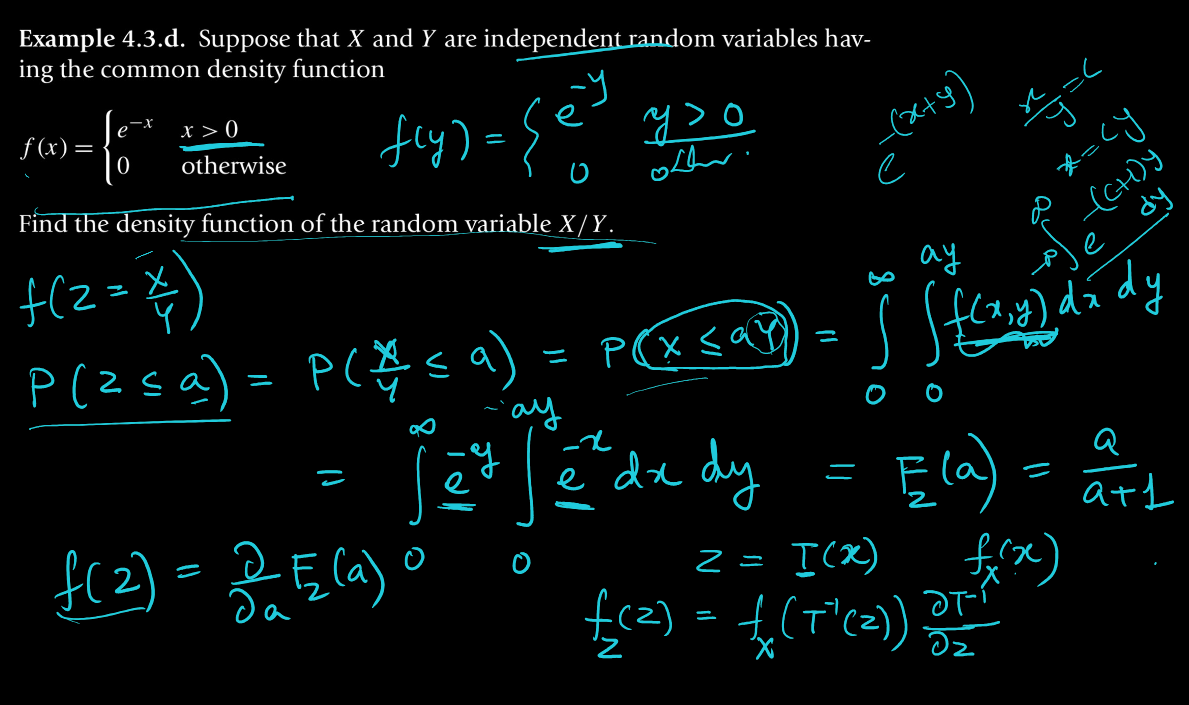 Example 4.3.d. Suppose that X and Y are independent random variables hav-
ing the common density function
f(x) = { e^{-x} x > 0
0 otherwise
f(y) = { e^{-y} y > 0
0 other.
e^{-(x+y)}
x/y = c
x = cy
e^{-(c+1)y} dy
Find the density function of the random variable X/Y.
f(Z = X/Y)
P(Z ≤ a) = P(X/Y ≤ a) = P(X ≤ aY) = ∫_0^∞ ∫_0^{ay} f(x,y) dx dy
= ∫_0^∞ e^{-y} ∫_0^{ay} e^{-x} dx dy = F_Z(a) = a/(a+1)
f(z) = ∂/∂a F_Z(a)
z = T(x) f_X(x)
f_Z(z) = f_X(T^{-1}(z)) ∂T^{-1}/∂z